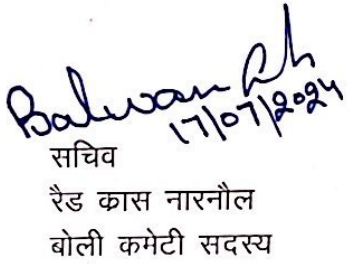 Balwan
17/07/2024
सचिव
रैड क्रास नारनौल
बोली कमेटी सदस्य